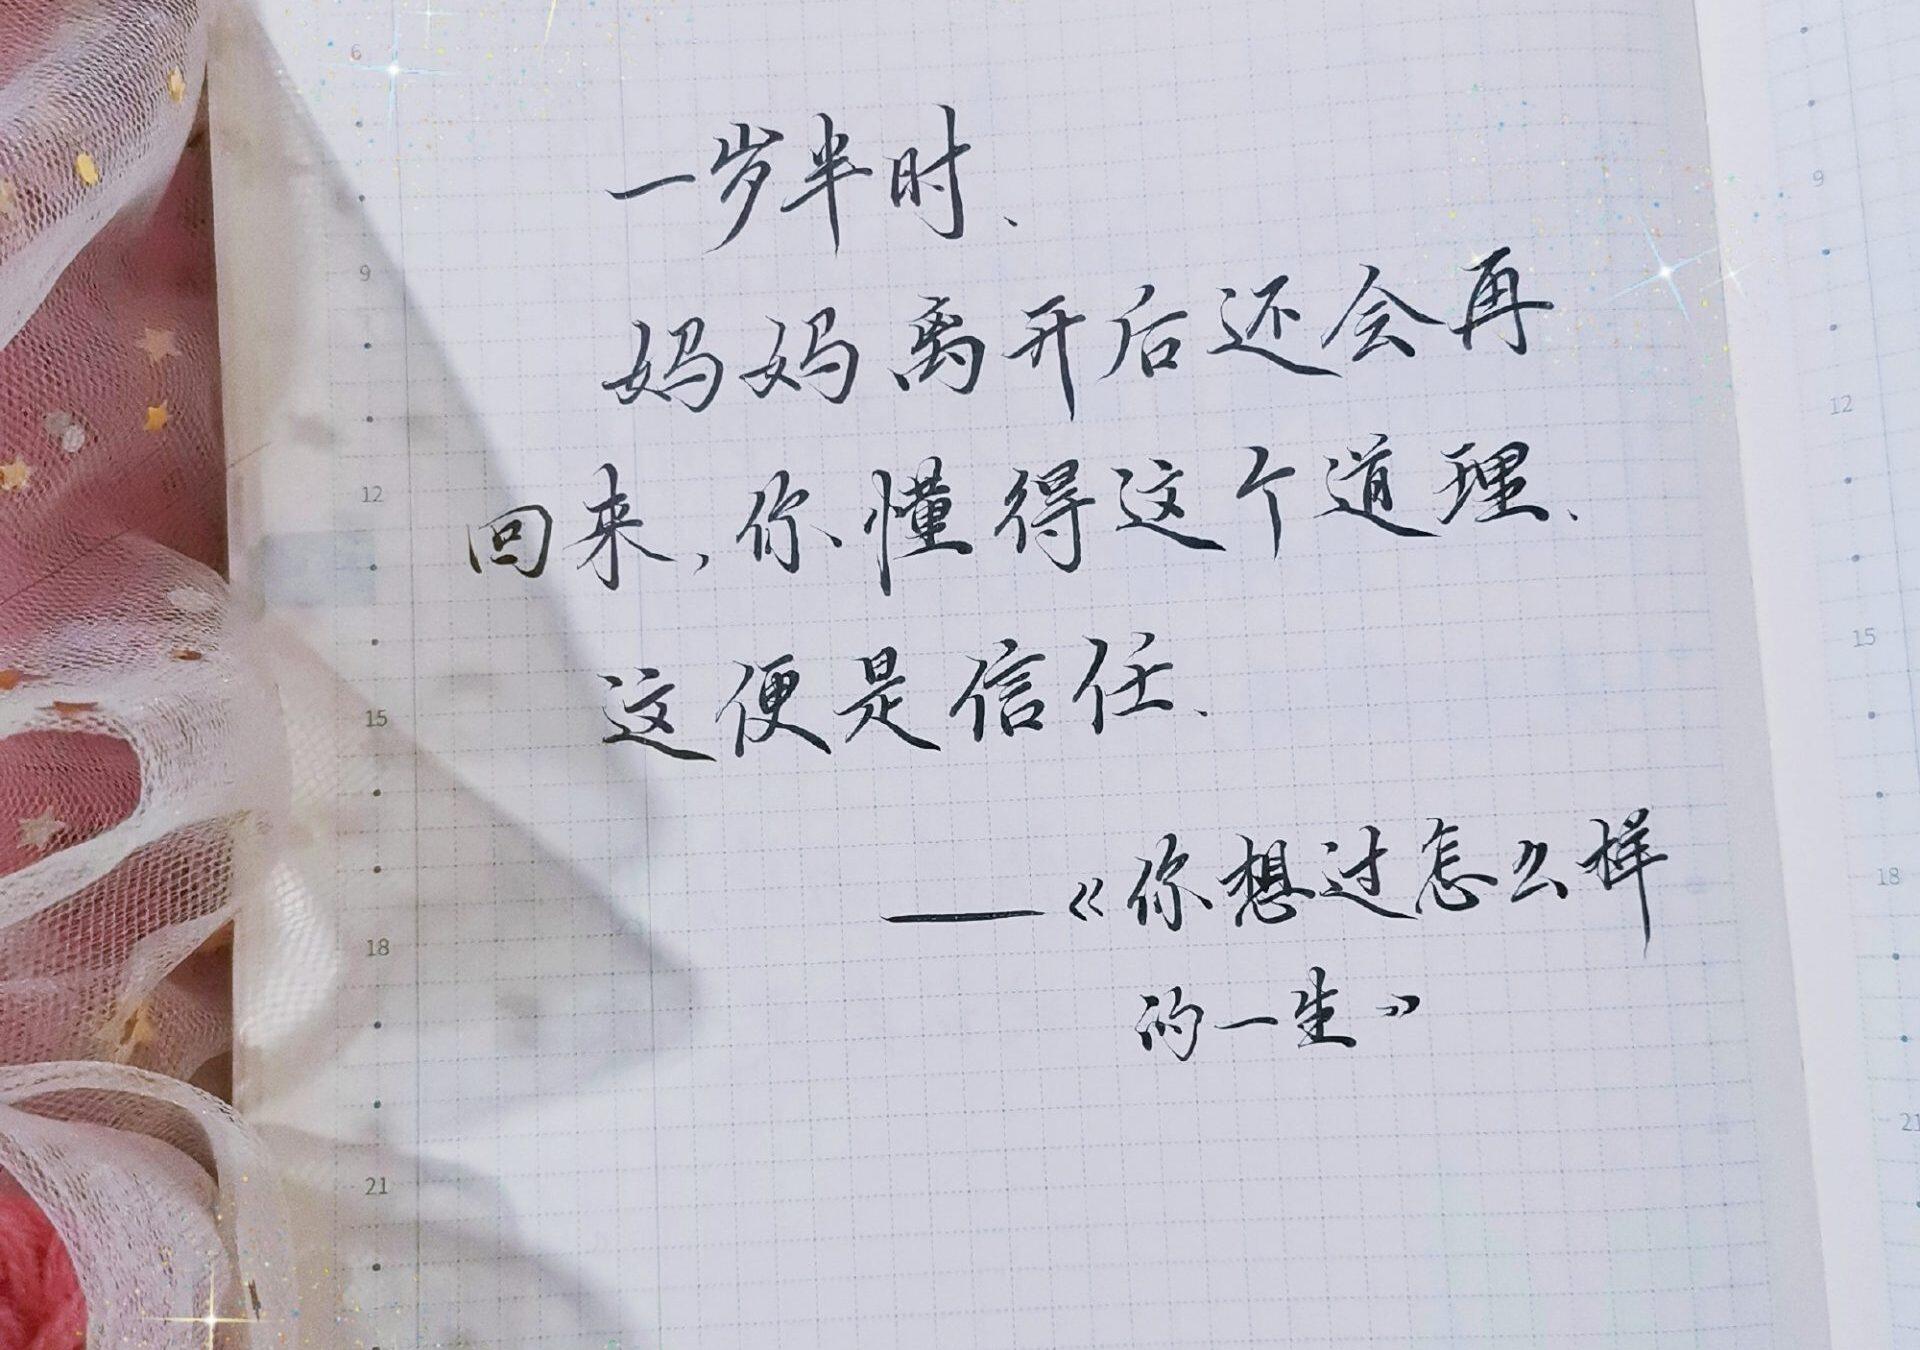 一岁半时、
妈妈离开后还会再
回来，你懂得这个道理、
这便是信任、
——《你想过怎么样
的一生》
6
9
12
15
18
21
9
12
15
18
21